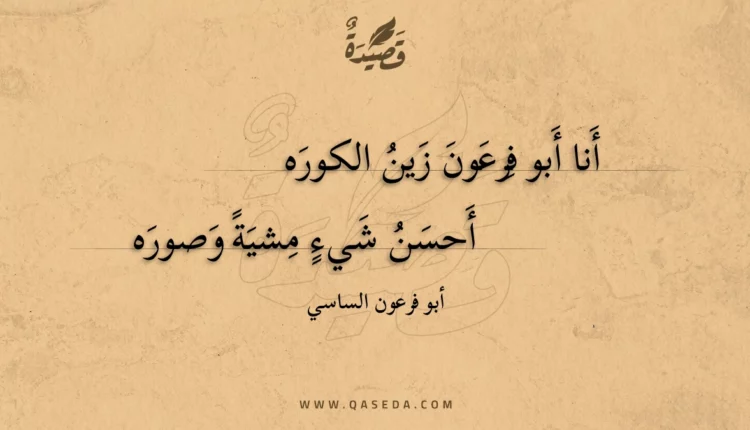 قَصِيْدَةٌ
أَنا أَبو فِرعَونَ زَينُ الكورَه
أَحسَنُ شَيءٍ مِشيَةً وَصورَه
أبو فرعون الساسي
WWW.QASEDA.COM